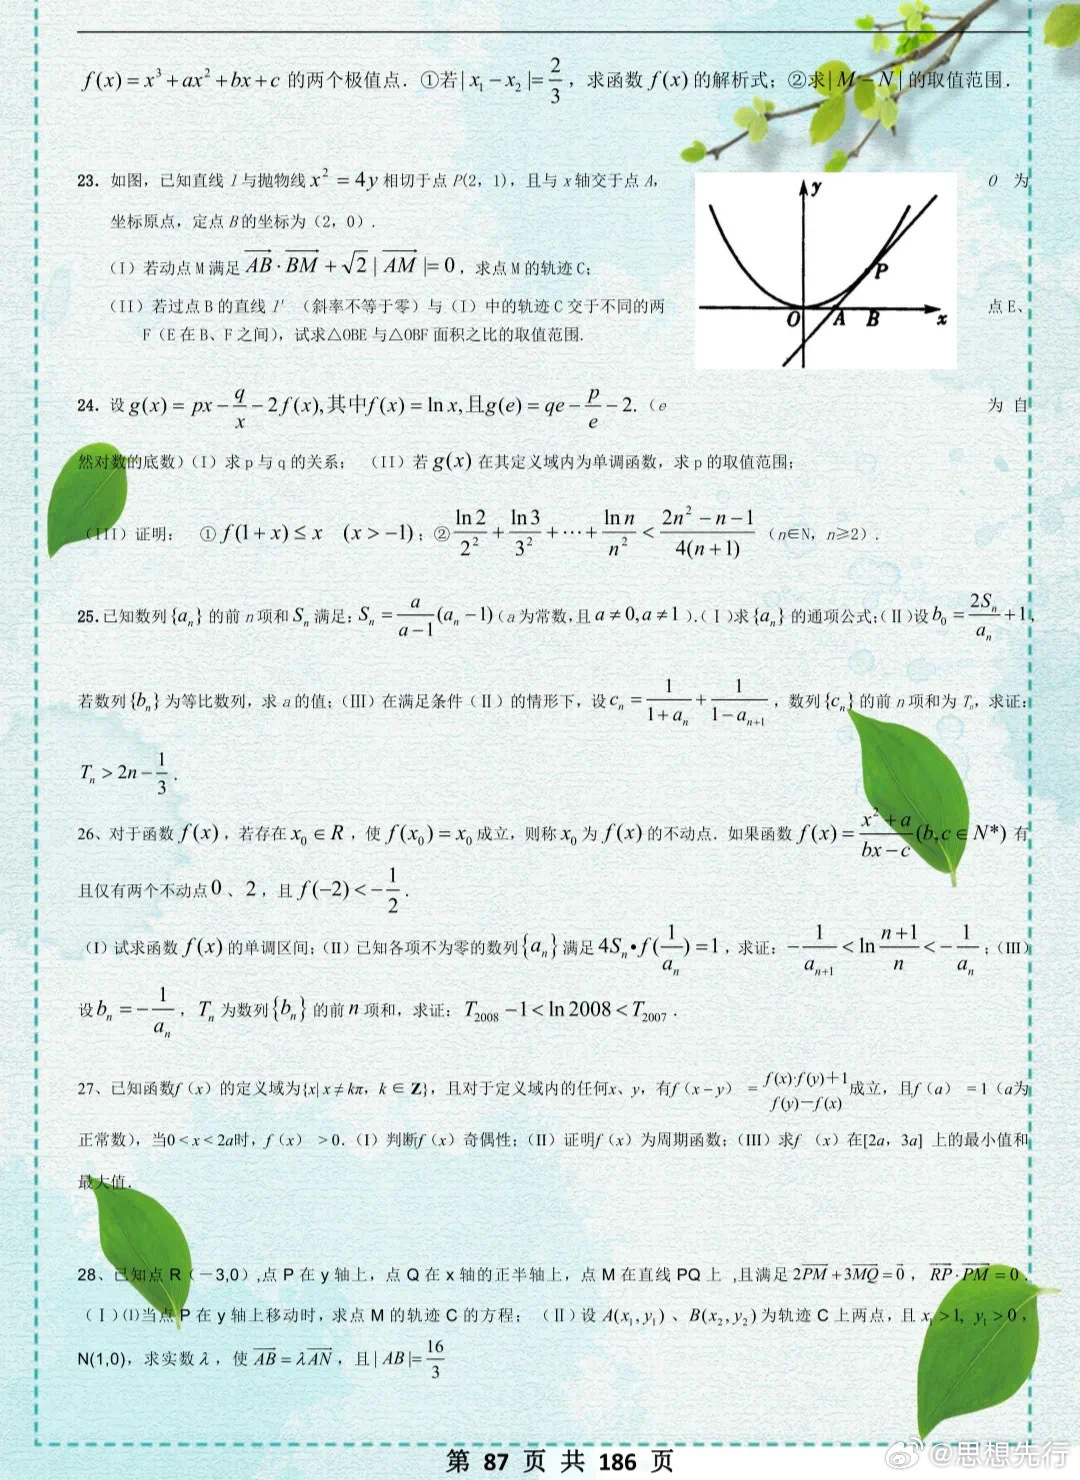 f(x)=x³+ax²+bx+c 的两个极值点．①若|x₁−x₂|=2/3，求函数 f(x) 的解析式；②求|M−N|的取值范围．
23．如图，已知直线 l 与抛物线 x²=4y 相切于点 P(2，1)，且与 x 轴交于点 A，O 为
坐标原点，定点 B 的坐标为（2，0）．
（I）若动点 M 满足 \overrightarrow{AB}·\overrightarrow{BM}+√2|\overrightarrow{AM}|=0，求点 M 的轨迹 C；
（II）若过点 B 的直线 l′（斜率不等于零）与（I）中的轨迹 C 交于不同的两点 E、
F（E 在 B、F 之间），试求△OBE 与△OBF 面积之比的取值范围．
y
P
O A B x
24．设 g(x)=px−q/x−2f(x),其中f(x)=ln x,且g(e)=qe−p/e−2.（e 为 自
然对数的底数）（I）求 p 与 q 的关系；（II）若 g(x) 在其定义域内为单调函数，求 p 的取值范围；
（III）证明： ①f(1+x)≤x (x>−1)；②ln2/2²+ln3/3²+⋯+ln n/n²<(2n²−n−1)/(4(n+1))（n∈N，n≥2）．
25.已知数列{aₙ}的前 n 项和 Sₙ 满足：Sₙ=a/(a−1)(aₙ−1)（a 为常数，且 a≠0,a≠1）.（Ⅰ）求{aₙ}的通项公式；（Ⅱ）设 b₀=2Sₙ/aₙ+1，
若数列{bₙ}为等比数列，求 a 的值；（Ⅲ）在满足条件（Ⅱ）的情形下，设 cₙ=1/(1+aₙ)+1/(1−aₙ₊₁)，数列{cₙ}的前 n 项和为 Tₙ，求证：
Tₙ>2n−1/3．
26、对于函数 f(x)，若存在 x₀∈R，使 f(x₀)=x₀ 成立，则称 x₀ 为 f(x) 的不动点．如果函数 f(x)=(x²+a)/(bx−c)(b,c∈N*) 有
且仅有两个不动点 0、2，且 f(−2)<−1/2．
（I）试求函数 f(x) 的单调区间；（II）已知各项不为零的数列{aₙ}满足 4Sₙ•f(1/aₙ)=1，求证：−1/aₙ₊₁<ln (n+1)/n<−1/aₙ；（III）
设 bₙ=−1/aₙ，Tₙ 为数列{bₙ}的前 n 项和，求证：T₂₀₀₈−1<ln 2008<T₂₀₀₇．
27、已知函数f（x）的定义域为{x| x≠kπ，k∈Z}，且对于定义域内的任何x、y，有f（x−y）=(f(x)·f(y)+1)/(f(y)−f(x))成立，且f（a）=1（a为
正常数），当0<x<2a时，f（x）>0．（I）判断f（x）奇偶性；（II）证明f（x）为周期函数；（III）求f（x）在[2a，3a] 上的最小值和
最大值．
28、已知点 R（－3,0）,点 P 在 y 轴上，点 Q 在 x 轴的正半轴上，点 M 在直线 PQ 上 ,且满足 2\overrightarrow{PM}+3\overrightarrow{MQ}=\vec{0}，\overrightarrow{RP}·\overrightarrow{PM}=0．
（Ⅰ）⑴当点 P 在 y 轴上移动时，求点 M 的轨迹 C 的方程；（Ⅱ）设 A(x₁,y₁)、B(x₂,y₂)为轨迹 C 上两点，且 x₁>1, y₁>0，
N(1,0)，求实数 λ，使 \overrightarrow{AB}=λ\overrightarrow{AN}，且|AB|=16/3
第 87 页 共 186 页
@思想先行